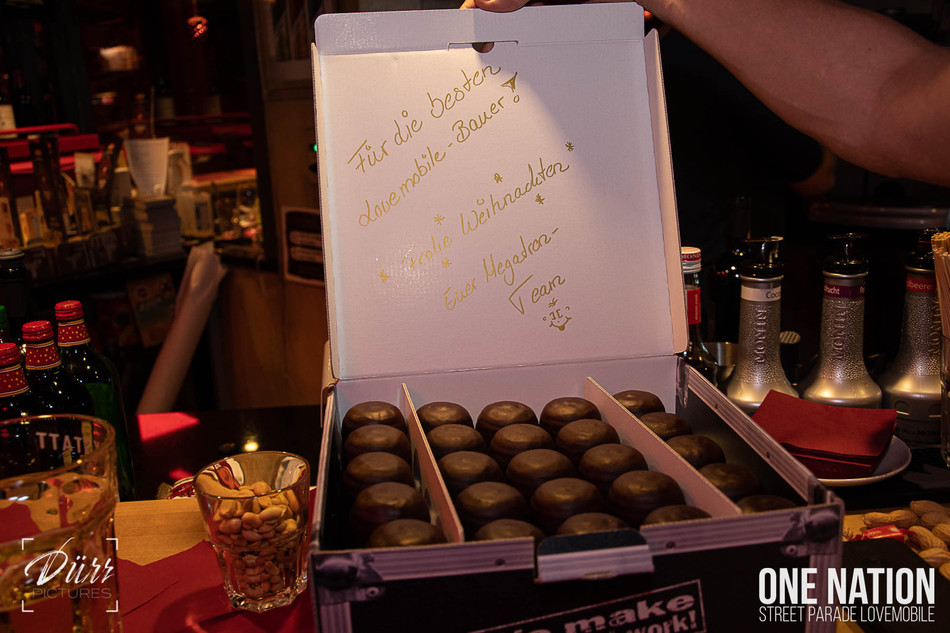 Für die besten
Lovemobile-Bauer!
* Frohe Weihnachten *
Euer Megatron-
Team
TTAT
make
work!
Dürr
PICTURES
ONE NATION
STREET PARADE LOVEMOBILE